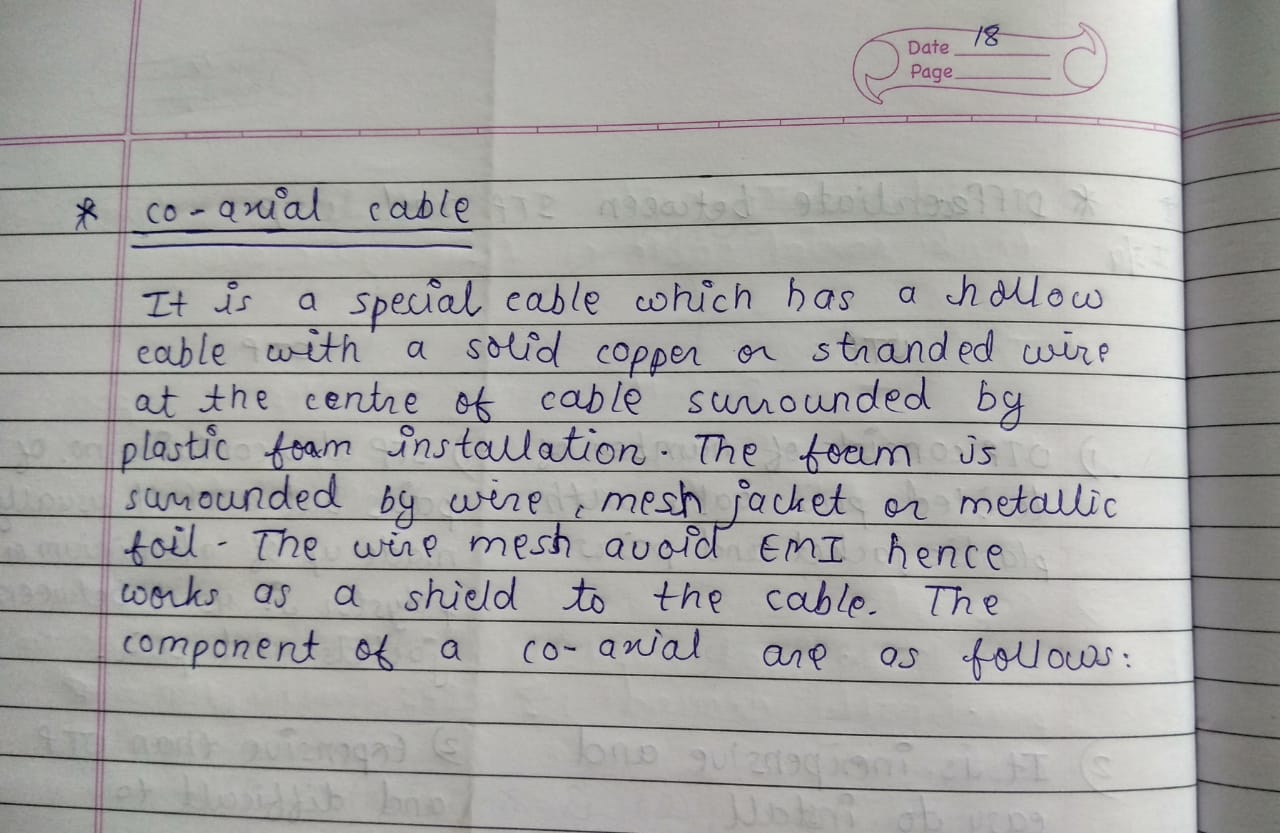 Date 18
Page
* co-axial cable
It is a special cable which has a hollow
cable with a solid copper or stranded wire
at the centre of cable surrounded by
plastic foam installation. The foam is
surrounded by wire, mesh jacket or metallic
foil. The wire mesh avoid EMI hence
works as a shield to the cable. The
component of a co-axial are as follows: